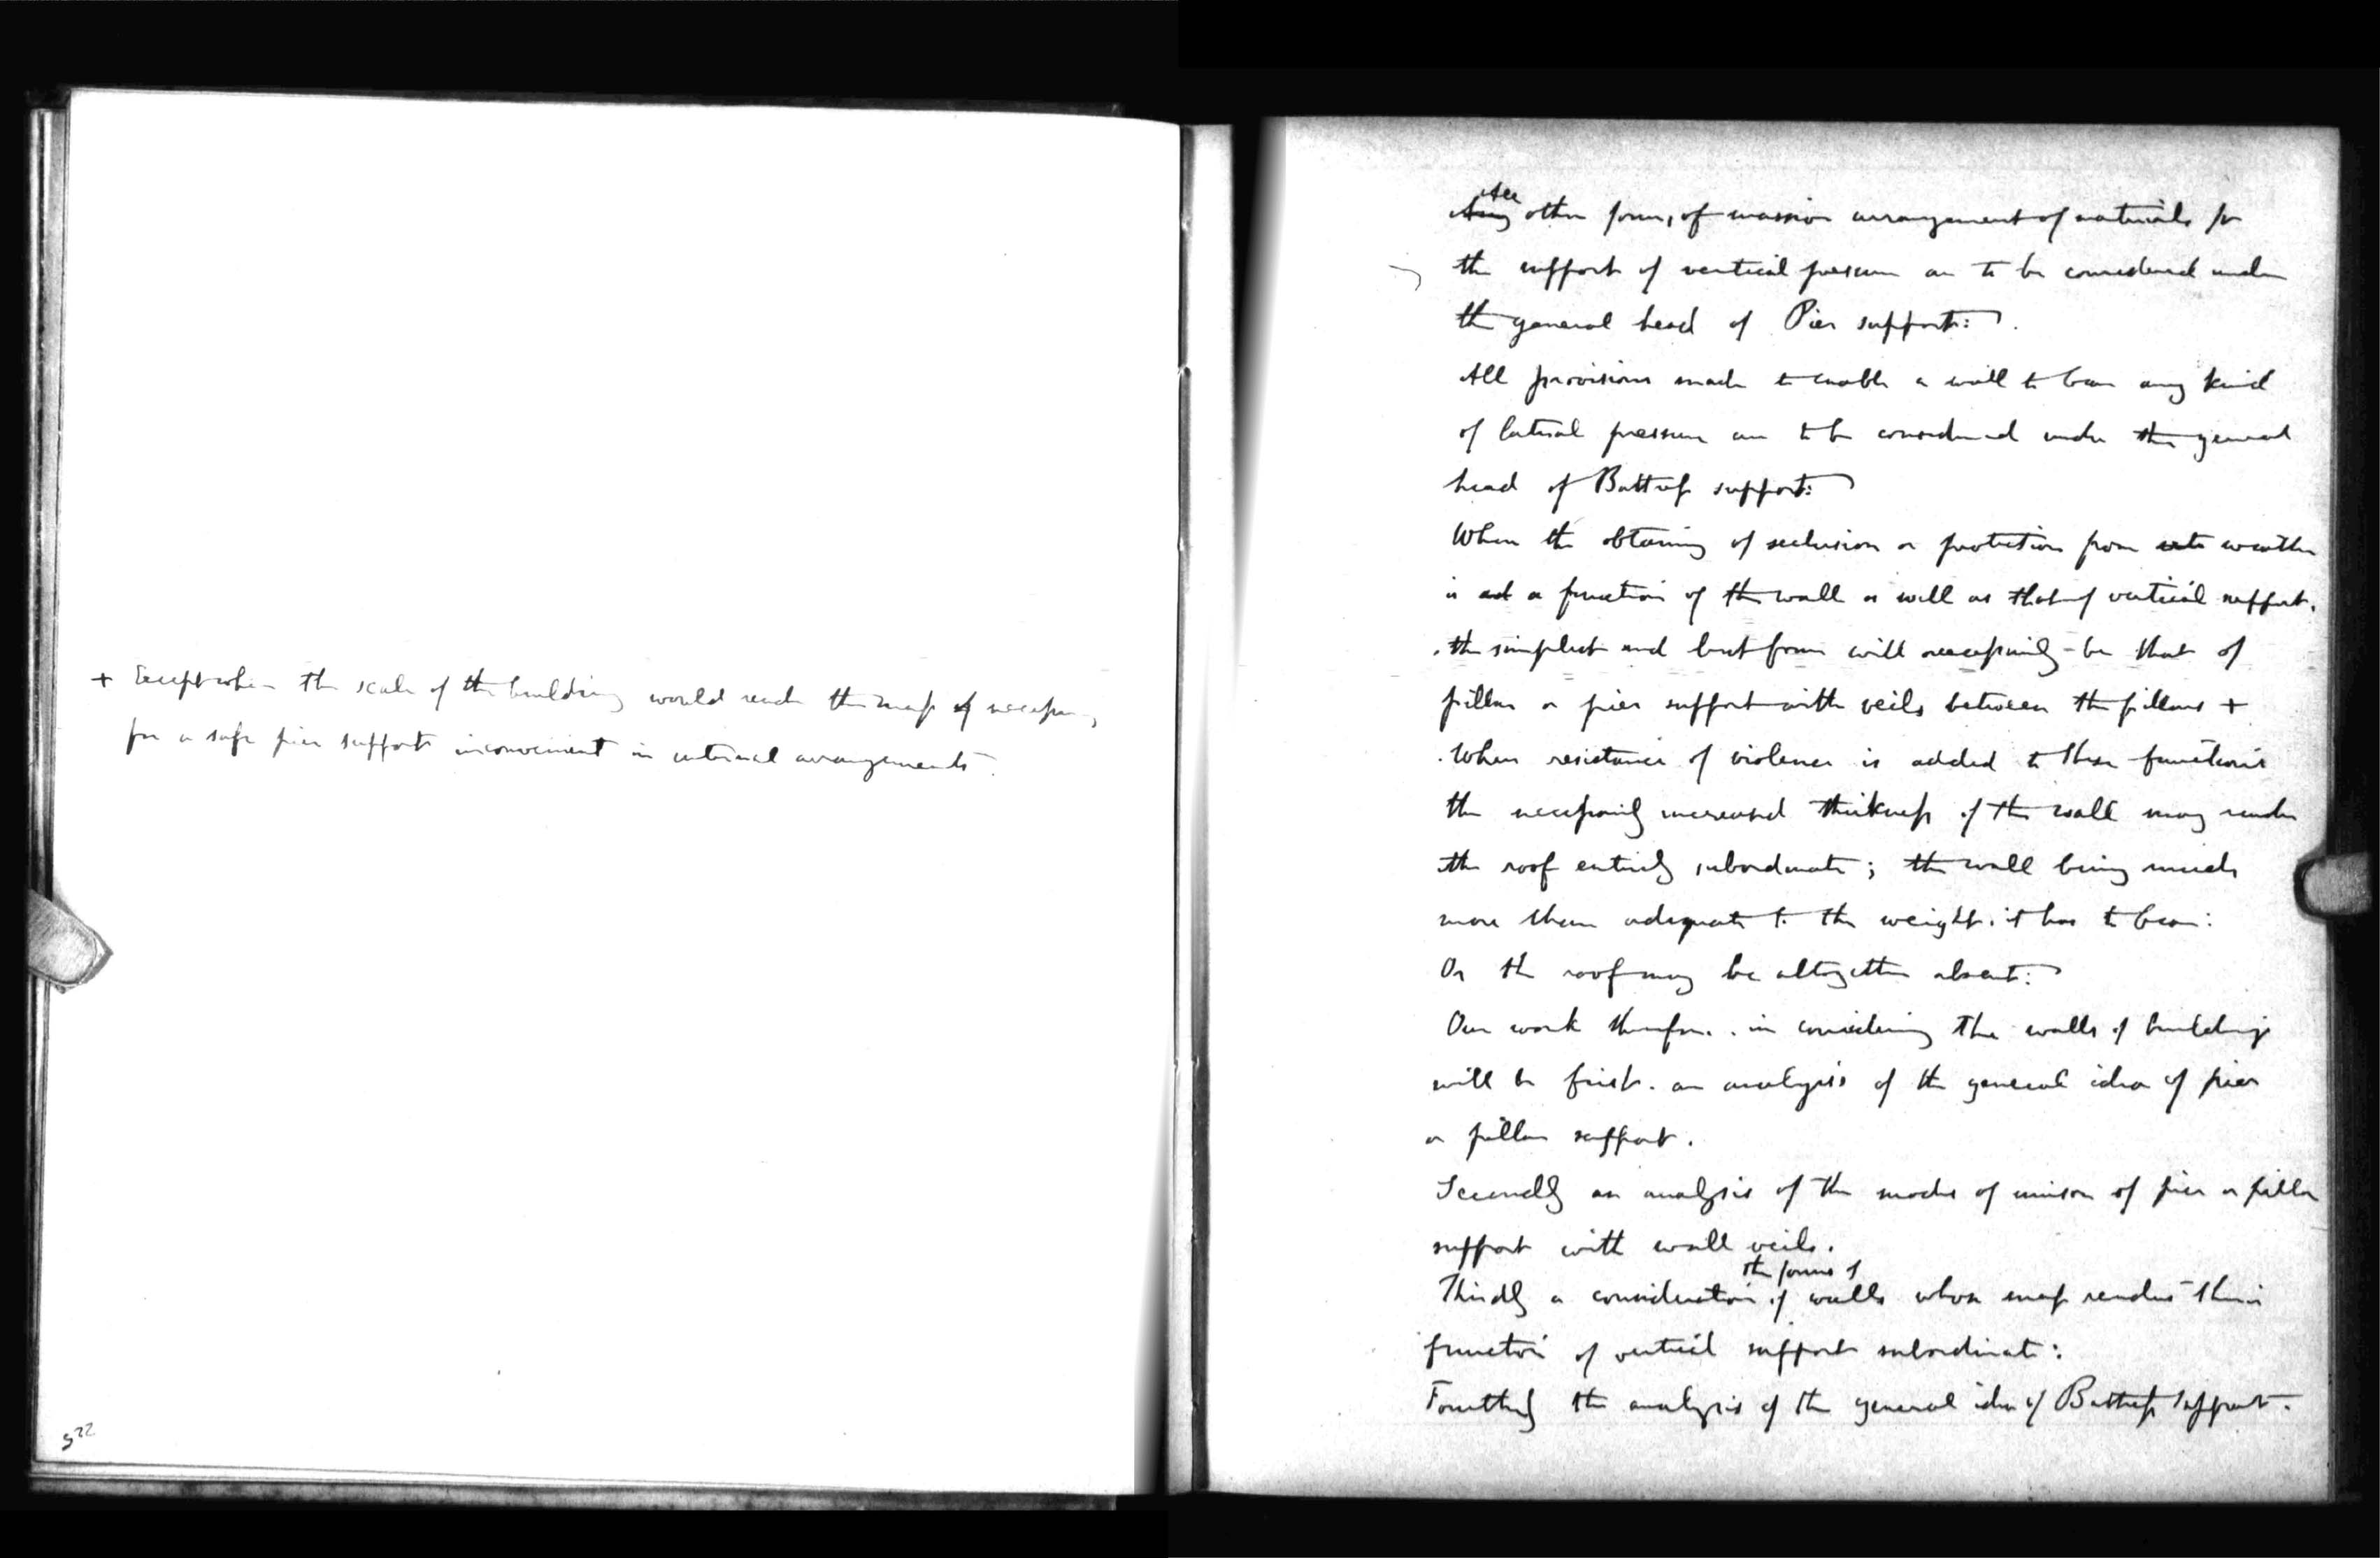 + Except when the scale of the building would render the mass of necessary
for a safe pier support inconvenient in internal arrangements.
522
All
Any other forms, of massive arrangement of materials for
the support of vertical pressure are to be considered under
the general head of Pier support:
All provisions made to enable a wall to bear any kind
of lateral pressure are to be considered under the general
head of Buttress support:
When the obtaining of seclusion or protection from weather
is a function of the wall as well as that of vertical support.
the simplest and best form will necessarily be that of
pillar or pier support with veils between the pillars +
When resistance of violence is added to these functions
the necessarily increased thickness of the wall may render
the roof entirely subordinate; the wall being much
more than adequate to the weight. it has to bear:
Or the roof may be altogether absent:
Our work therefore. in considering the walls of buildings
will be first. an analysis of the general idea of pier
or pillar support.
Secondly an analysis of the modes of union of pier or pillar
support with wall veils.
the forms of
Thirdly a consideration of walls whose mass renders their
function of vertical support subordinate:
Fourthly the analysis of the general idea of Buttress support.